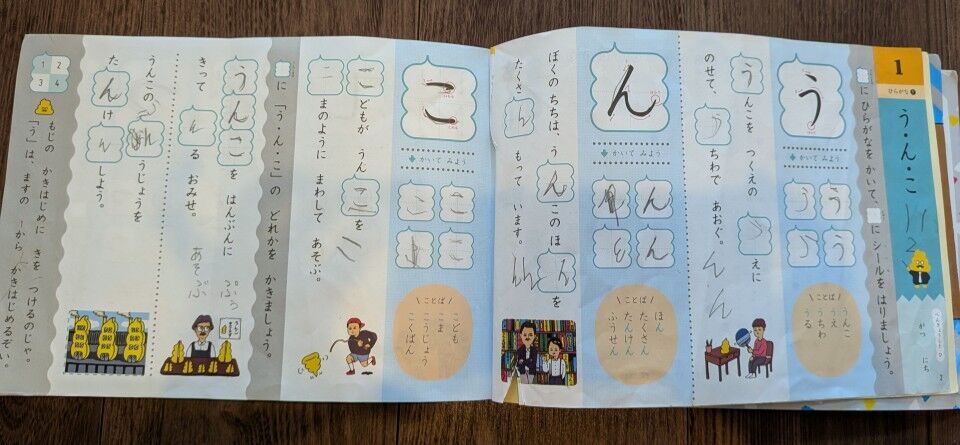 1
ひらがな①
う・ん・こ
がつ
にち
2
にひらがなをかいて、にシールをはりましょう。
う
かいてみよう
う
う
う
う
ことば
うんこ
うえ
うちわ
うる
うんこを つくえの
うえに
のせて、
うちわで あおぐ。
ん
ん
ん
かいてみよう
ん
ん
ん
ことば
ほん
たくさん
たんけん
ふうせん
ぼくの ちちは、うんこの ほんを
たくさん もって います。
こ
かいてみよう
こ
こ
こ
ことば
こども
こま
こうじょう
こくばん
こどもが うんこを
こまのように まわして あそぶ。
こ
に「う・ん・こ」の どれかを かきましょう。
うんこを はんぶんに
きって うんる おみせ。
あそぶ
ぷう
うんこの こうじょうを
たんけんしよう。
1
2
3
4
もじの かきはじめに きを つけるのじゃ。
「う」は、ますの 1から かきはじめるぞい。